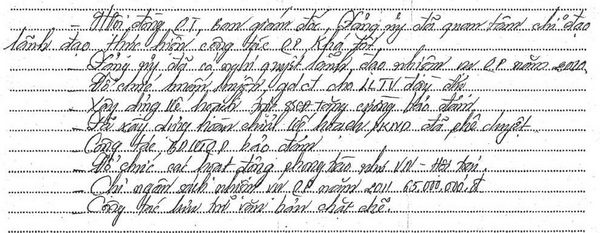 - Hội đồng, QT, Ban giám đốc, Đảng ủy đã quan tâm chỉ đạo
lãnh đạo, thực hiện công tác QP khá tốt.
- Đảng ủy đã có nghị quyết lãnh đạo nhiệm vụ QP năm
- Tổ chức huấn luyện gdct cho LLTV đầy đủ
- Xây dựng kế hoạch tăng cường bảo đảm
- Đã xây dựng hoàn chỉnh kế hoạch PKND đã phê duyệt
- Công tác bảo đảm
- Tổ chức các hoạt động phong trào như VN -
- Chi ngân sách nhiệm vụ QP năm 2011 65.000.000.đ
- Công tác lưu trữ văn bản chặt chẽ.